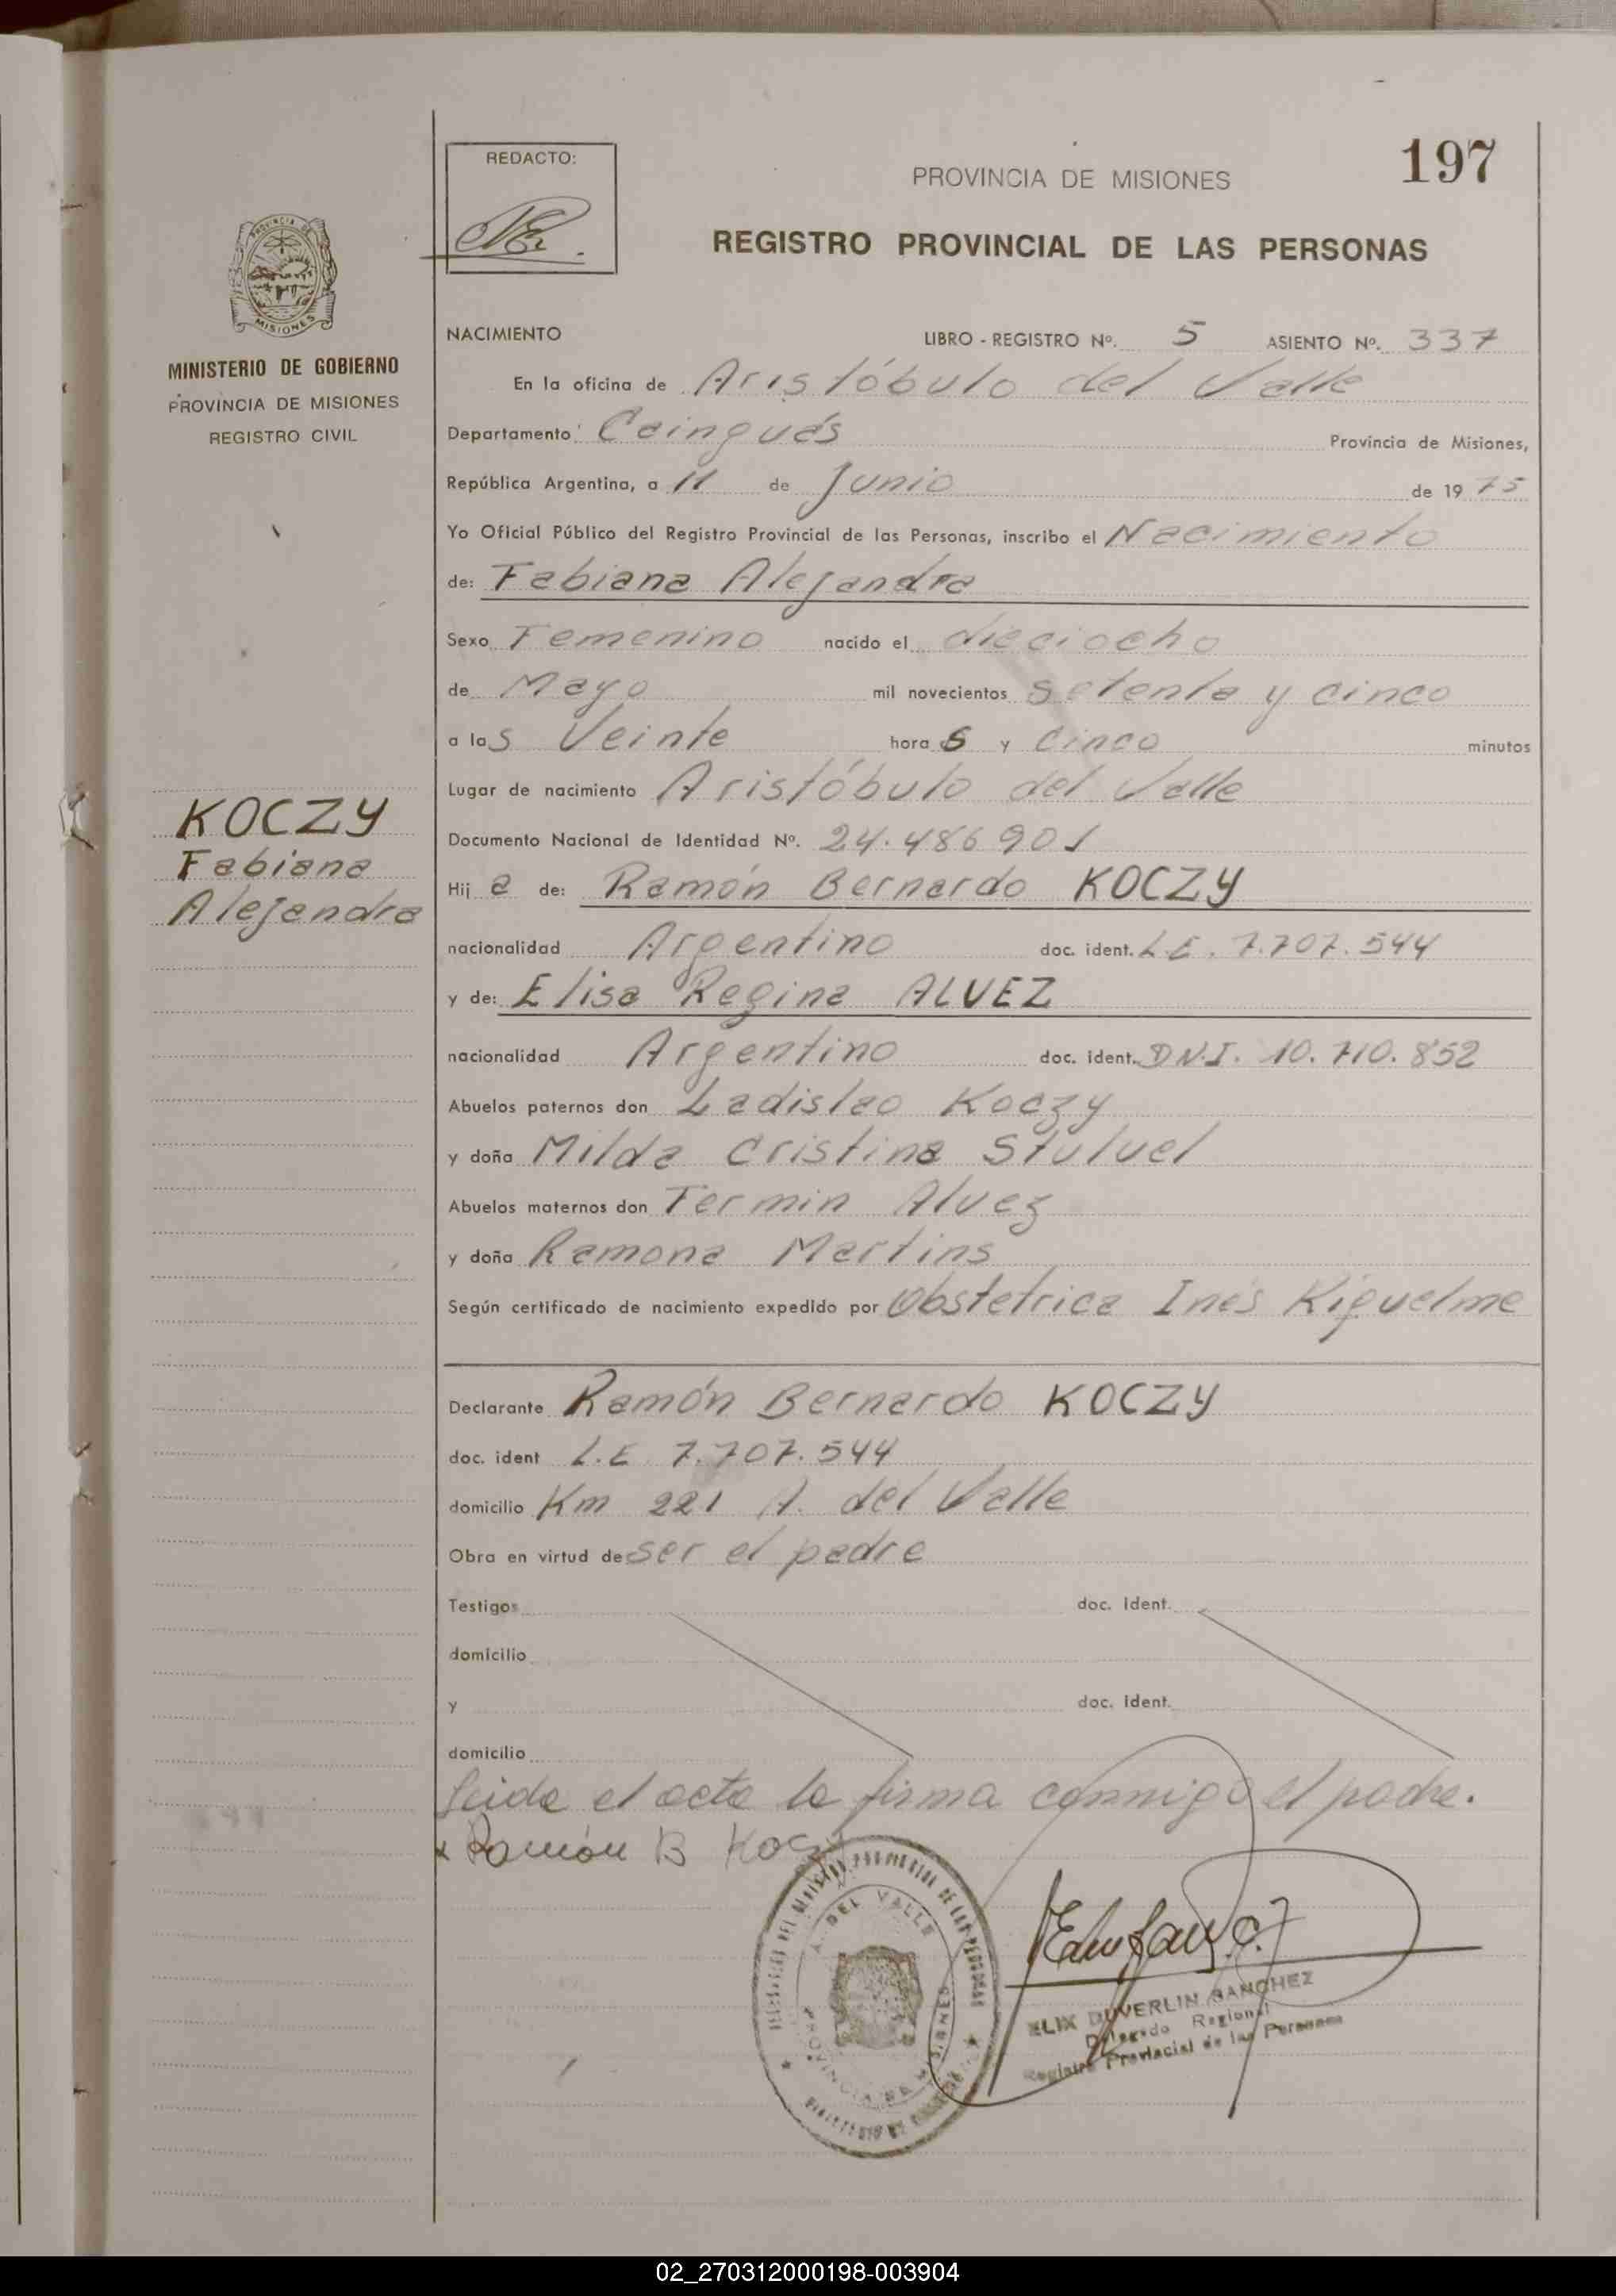 197
REDACTO:
PROVINCIA DE MISIONES
REGISTRO PROVINCIAL DE LAS PERSONAS
PROVINCIA DE
MISIONES
MINISTERIO DE GOBIERNO
PROVINCIA DE MISIONES
REGISTRO CIVIL
NACIMIENTO LIBRO - REGISTRO Nº. 5 ASIENTO Nº. 337
En la oficina de Aristóbulo del Valle
Departamento: Cainguás Provincia de Misiones,
República Argentina, a 11 de Junio de 1975
Yo Oficial Público del Registro Provincial de las Personas, inscribo el Nacimiento
de: Fabiana Alejandra
Sexo Femenino nacido el dieciocho
de Mayo mil novecientos setenta y cinco
a las Veinte horas y cinco minutos
Lugar de nacimiento Aristóbulo del Valle
Documento Nacional de Identidad Nº. 24.486901
KOCZY
Fabiana
Alejandra
Hija de: Ramón Bernardo KOCZY
nacionalidad Argentino doc. ident. L.E. 7.707.544
y de: Elisa Regina ALVEZ
nacionalidad Argentino doc. ident. D.N.I. 10.710.852
Abuelos paternos don Ladislao Koczy
y doña Milda Cristina Stuluel
Abuelos maternos don Fermin Alvez
y doña Ramona Martins
Según certificado de nacimiento expedido por Obstetrica Inés Riguelme
Declarante Ramón Bernardo KOCZY
doc. ident L.E 7.707.544
domicilio Km 221 A. del Valle
Obra en virtud de ser el padre
Testigos doc. ident.
domicilio
y doc. ident.
domicilio
Leida el acta la firma conmigo el padre.
x Ramón B Koczy
A. DEL VALLE
ELIX DUVERLIN SANCHEZ
Delegado Regional
Registro Provincial de las Personas
02_270312000198-003904